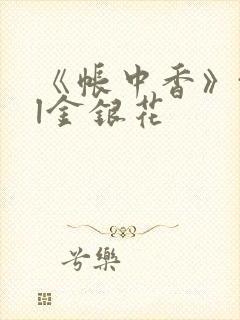 《帐中香》
|金银花
兮樂